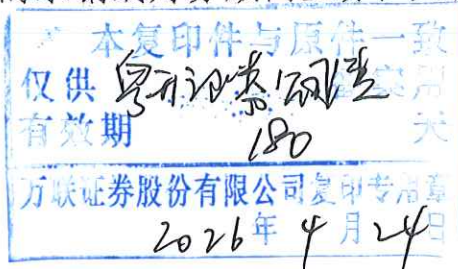 本复印件与原件一致
仅供粤开证券
有效期 180 天
万联证券股份有限公司复印专用章
2026年4月24日